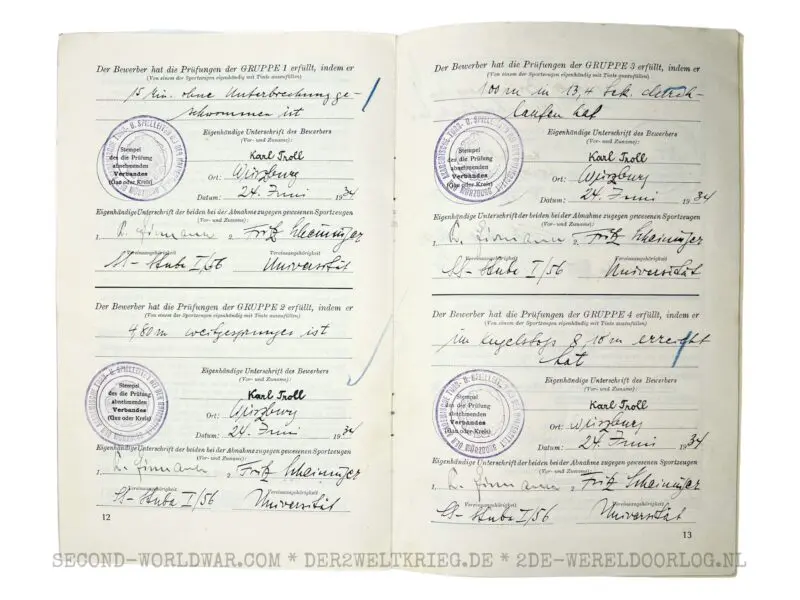 Der Bewerber hat die Prüfungen der GRUPPE 1 erfüllt, indem er
(Von einem der Sportzeugen eigenhändig mit Tinte auszufüllen)
15 Min. ohne Unterbrechung ge-
schwommen ist
Stempel
des die Prüfung
abnehmenden
Verbandes
(Gau oder Kreis)
Eigenhändige Unterschrift des Bewerbers
(Vor- und Zuname):
Karl Troll
Ort: Würzburg
Datum: 24. Juni 1934
Eigenhändige Unterschrift der beiden bei der Abnahme zugegen gewesenen Sportzeugen
(Vor- und Zuname):
1. 2. Fritz Scheininger
Vereinszugehörigkeit
Universität
Der Bewerber hat die Prüfungen der GRUPPE 2 erfüllt, indem er
(Von einem der Sportzeugen eigenhändig mit Tinte auszufüllen)
4,80 m weitgesprungen ist
Stempel
des die Prüfung
abnehmenden
Verbandes
(Gau oder Kreis)
Eigenhändige Unterschrift des Bewerbers
(Vor- und Zuname):
Karl Troll
Ort: Würzburg
Datum: 24. Juni 1934
Eigenhändige Unterschrift der beiden bei der Abnahme zugegen gewesenen Sportzeugen
(Vor- und Zuname):
1. 2. Fritz Scheininger
Vereinszugehörigkeit
Universität
12
Der Bewerber hat die Prüfungen der GRUPPE 3 erfüllt, indem er
(Von einem der Sportzeugen eigenhändig mit Tinte auszufüllen)
100 m in 13,4 Sek. durch-
laufen hat
Stempel
des die Prüfung
abnehmenden
Verbandes
(Gau oder Kreis)
Eigenhändige Unterschrift des Bewerbers
(Vor- und Zuname):
Karl Troll
Ort: Würzburg
Datum: 24. Juni 1934
Eigenhändige Unterschrift der beiden bei der Abnahme zugegen gewesenen Sportzeugen
(Vor- und Zuname):
1. 2. Fritz Scheininger
Vereinszugehörigkeit
Universität
Der Bewerber hat die Prüfungen der GRUPPE 4 erfüllt, indem er
(Von einem der Sportzeugen eigenhändig mit Tinte auszufüllen)
im Kugelstoß 8,10 m erreicht
hat
Stempel
des die Prüfung
abnehmenden
Verbandes
(Gau oder Kreis)
Eigenhändige Unterschrift des Bewerbers
(Vor- und Zuname):
Karl Troll
Ort: Würzburg
Datum: 24. Juni 1934
Eigenhändige Unterschrift der beiden bei der Abnahme zugegen gewesenen Sportzeugen
(Vor- und Zuname):
1. 2. Fritz Scheininger
Vereinszugehörigkeit
Universität
13
SECOND-WORLDWAR.COM * DER2WELTKRIEG.DE * 2DE-WERELDOORLOG.NL